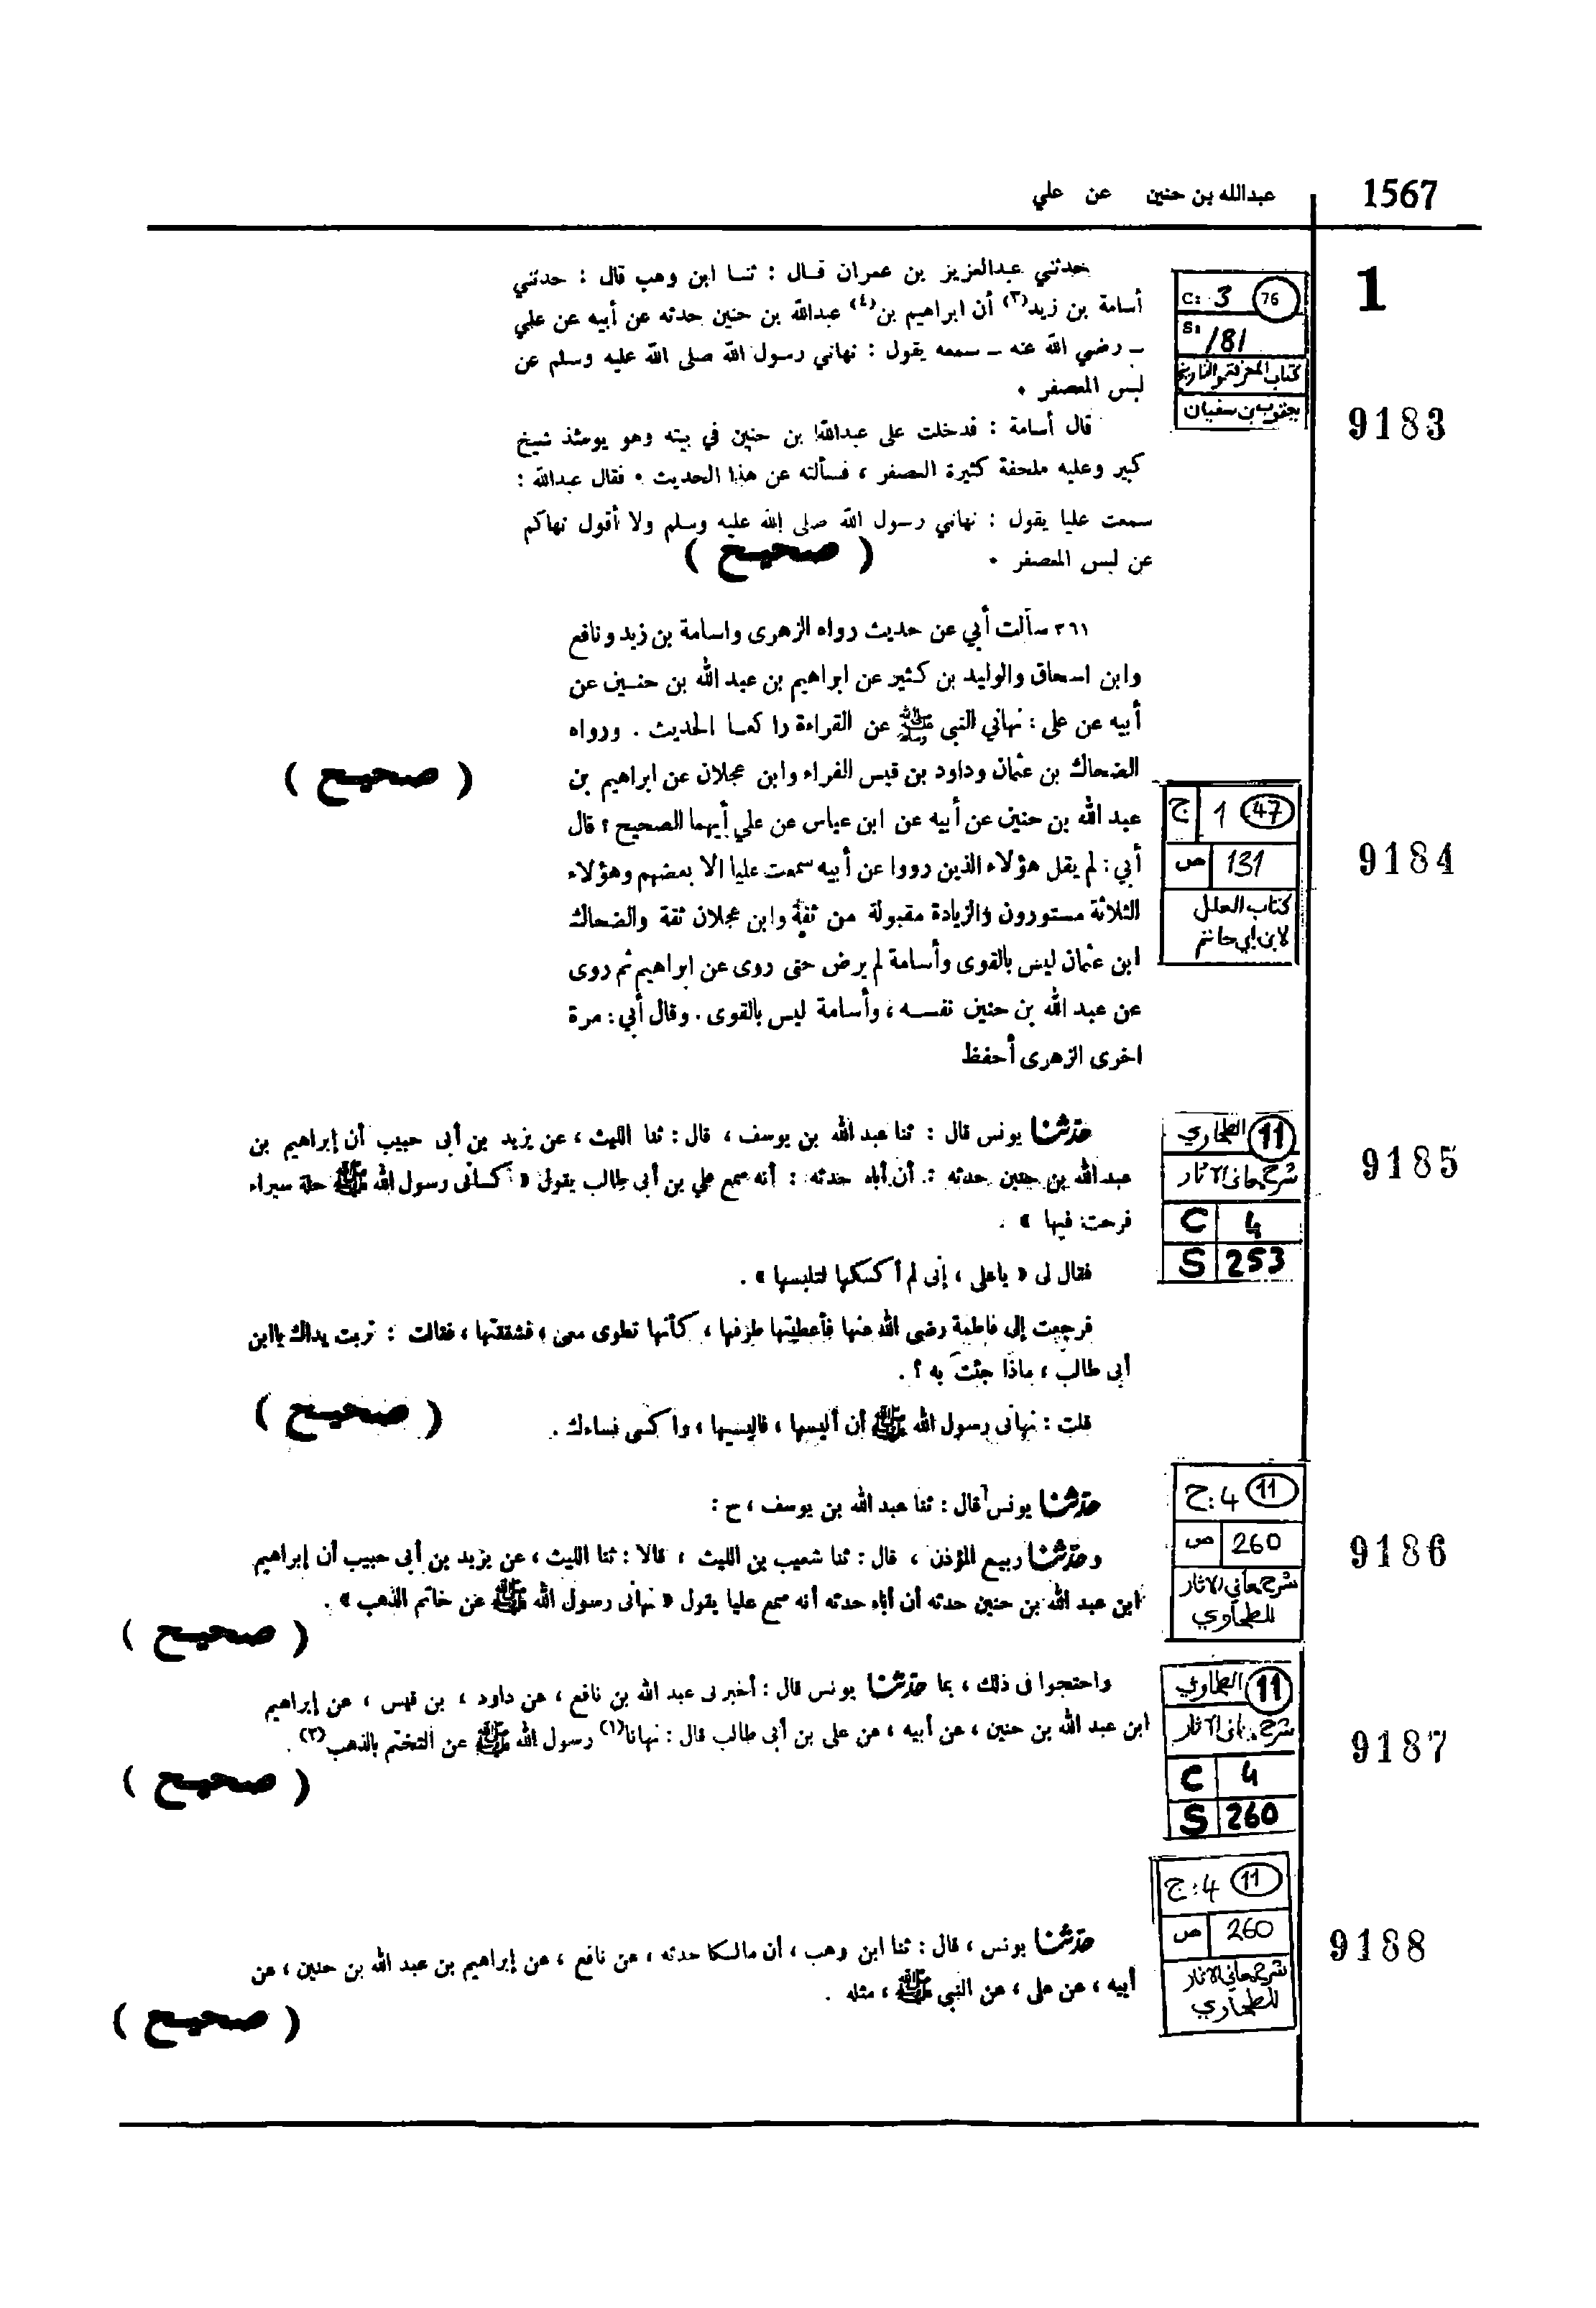 1567
عبدالله بن حنين عن علي
1
C: 3 76
S: 181
كتاب المعرفة والتاريخ
يعقوب بن سفيان
9183
حدثني عبدالعزيز بن عمران قال : ثنا ابن وهب قال : حدثني
أسامة بن زيد(٣) أن ابراهيم بن(٤) عبدالله بن حنين حدثه عن أبيه عن علي
ـ رضي الله عنه ـ سمعه يقول : نهاني رسول الله صلى الله عليه وسلم عن
لبس المعصفر .
قال أسامة : فدخلت على عبدالله بن حنين في بيته وهو يومئذ شيخ
كبير وعليه ملحفة كثيرة العصفر ، فسألته عن هذا الحديث . فقال عبدالله :
سمعت عليا يقول : نهاني رسول الله صلى الله عليه وسلم ولا أقول نهاكم
عن لبس المعصفر .
( صحيح )
47 1 ج
131 ص
كتاب العلل
لابن ابي حاتم
9184
٣٦١ سألت أبي عن حديث رواه الزهرى واسامة بن زيد ونافع
وابن اسحاق والوليد بن كثير عن ابراهيم بن عبد الله بن حنين عن
أبيه عن على : نهاني النبي ﷺ عن القراءة راكعا الحديث . ورواه
الضحاك بن عثمان وداود بن قيس الفراء وابن عجلان عن ابراهيم بن
عبد الله بن حنين عن أبيه عن ابن عباس عن علي أيهما الصحيح ؟ قال
أبي : لم يقل هؤلاء الذين رووا عن أبيه سمعت عليا الا بعضهم وهؤلاء
الثلاثة مستورون والزيادة مقبولة من ثقة وابن عجلان ثقة والضحاك
ابن عثمان ليس بالقوى وأسامة لم يرض حتى روى عن ابراهيم ثم روى
عن عبد الله بن حنين نفسه ، وأسامة ليس بالقوى . وقال أبي : مرة
اخرى الزهرى أحفظ
( صحيح )
11 الطحاوي
شرح معاني الاثار
C 4
S 253
9185
حدثنا يونس قال : ثنا عبد الله بن يوسف ، قال : ثنا الليث ، عن يزيد بن أبى حبيب أن إبراهيم بن
عبد الله بن حنين حدثه : أن أباه حدثه : أنه سمع علي بن أبى طالب يقول « كسانى رسول الله ﷺ حلة سيراء
فرحت فيها » .
فقال لى « ياعلى ، إنى لم أكسكها لتلبسها » .
فرجعت إلى فاطمة رضى الله عنها فأعطيتها طرفها ، كأنها تطوى معى ، فشققتها ، فقالت : تربت يداك ياابن
أبى طالب ، ماذا جئت به ؟ .
قلت : نهانى رسول الله ﷺ أن ألبسها ، فالبسيها ، واكسى نساءك .
( صحيح )
11 4 : ج
260 ص
شرح معاني الاثار
للطحاوي
9186
حدثنا يونس قال : ثنا عبد الله بن يوسف ، ح :
وحدثنا ربيع المؤذن ، قال : ثنا شعيب بن الليث ، قالا : ثنا الليث ، عن يزيد بن أبى حبيب أن إبراهيم
ابن عبد الله بن حنين حدثه أن أباه حدثه أنه سمع عليا يقول « نهانى رسول الله ﷺ عن خاتم الذهب » .
( صحيح )
11 الطحاوي
شرح معاني الاثار
C 4
S 260
9187
واحتجوا فى ذلك ، بما حدثنا يونس قال : أخبرنى عبد الله بن نافع ، عن داود ، بن قيس ، عن إبراهيم
ابن عبد الله بن حنين ، عن أبيه ، عن على بن أبى طالب قال : نهانا(١) رسول الله ﷺ عن التختم بالذهب(٢) .
( صحيح )
11 4 : ج
260 ص
شرح معاني الاثار
للطحاوي
9188
حدثنا يونس ، قال : ثنا ابن وهب ، أن مالكا حدثه ، عن نافع ، عن إبراهيم بن عبد الله بن حنين ، عن
أبيه ، عن على ، عن النبى ﷺ ، مثله .
( صحيح )